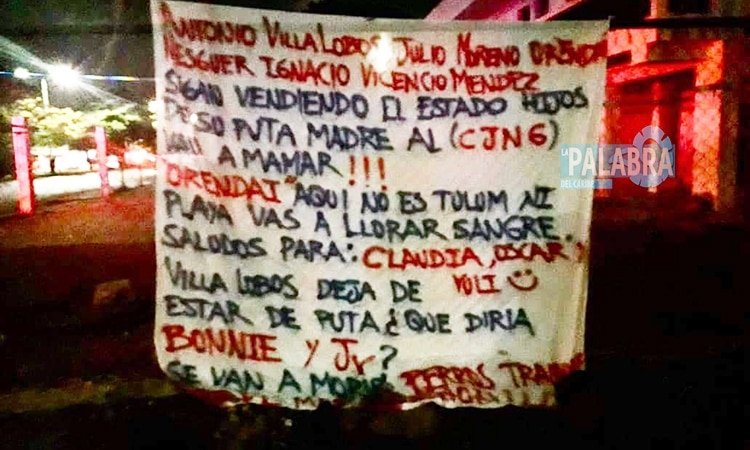 ANTONIO VILLA LOBOS, JULIO MORENO ORENDAI
NESGUER IGNACIO VICENCIO MENDEZ
SIGAN VENDIENDO EL ESTADO HIJOS
DE SU PUTA MADRE AL (CJNG)
VAN A MAMAR!!!
ORENDAI "AQUI NO ES TULUM NI
PLAYA VAS A LLORAR SANGRE.
SALUDOS PARA: CLAUDIA, OSCAR Y
VILLA LOBOS DEJA DE YULI
ESTAR DE PUTA ¿QUE DIRIA
BONNIE Y Jr?
SE VAN A MORIR PERROS
LA PALABRA
DEL CARIBE